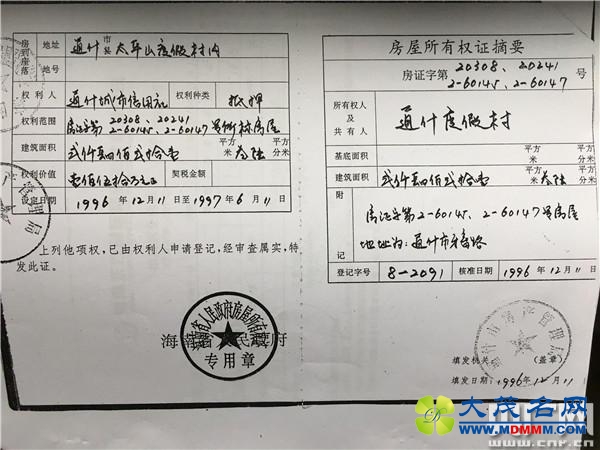 房屋座落 地址 通什市县 太平山度假村内
地号
权利人 通什城市信用社 权利种类 抵押
权利范围 房证字第20308、20241 2-60145、2-60147号所标房屋
建筑面积 贰仟四佰贰拾壹 平方米 叁陆 平方分米
权利价值 壹佰伍拾万元正 契税金额
设定日期 1996年12月11日至1997年6月11日
上列他项权,已由权利人申请登记,经审查属实,特
发此证。
海南省人民政府
海南省人民政府房屋所有权证
专用章
房屋所有权证摘要
房证字第 20308、20241 2-60145、2-60147 号
所有权人及共有人 通什度假村
基底面积 平方米 平方分米
建筑面积 贰仟四佰贰拾壹 平方米 叁陆 平方分米
附记 房证字第2-60145、2-60147号房屋
地址为:通什市牙畜路
登记字号 8-2091 核准日期 1996年12月11日
通什市房产管理局
填发机关 (盖章)
填发日期:1996年12月11
大茂名网
WWW.MDMMM.COM
www.cnr.cn